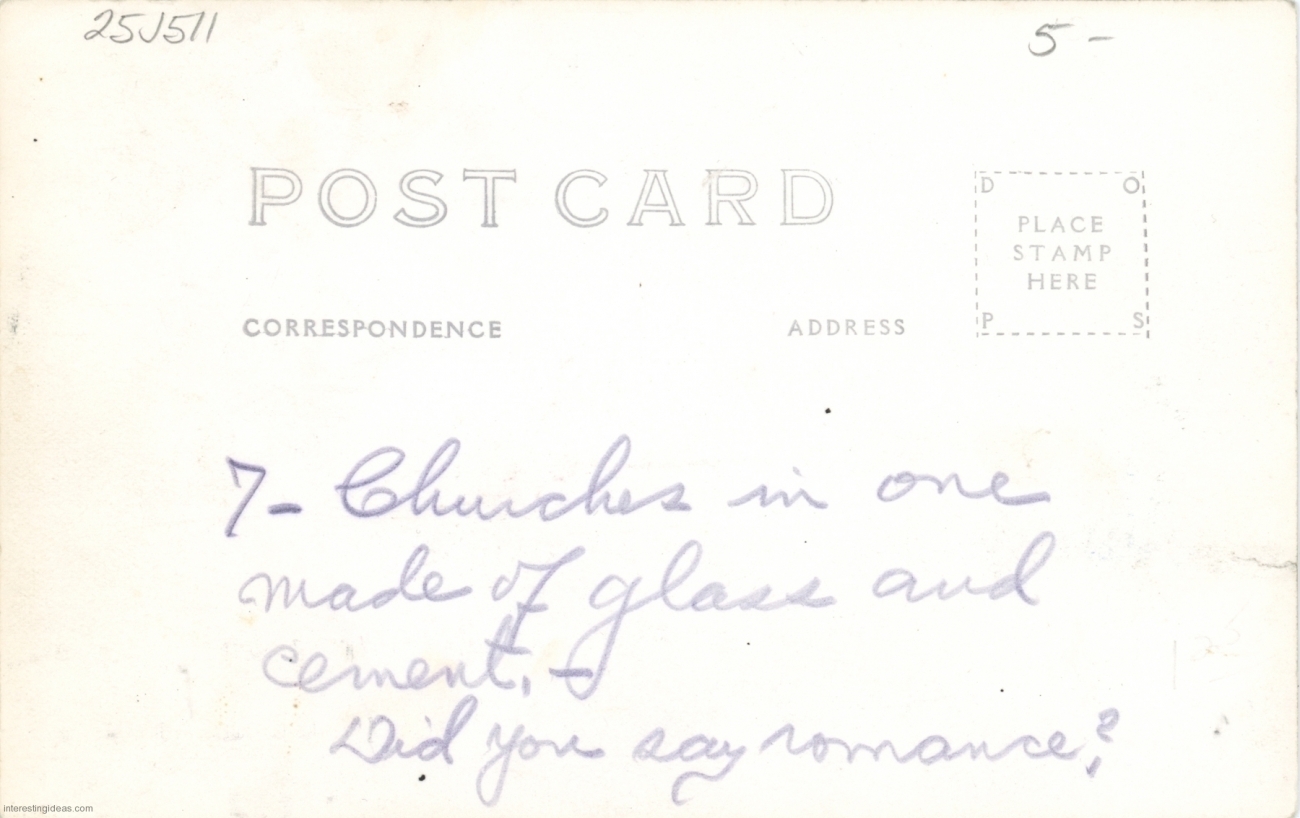 25J511
5-
POST CARD
D O
PLACE
STAMP
HERE
P S
CORRESPONDENCE
ADDRESS
7- Churches in one
made of glass and
cement. -
Did you say romance?
interestingideas.com